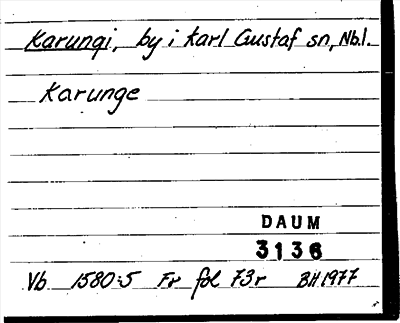 Karungi, by i Karl Gustaf sn, Nb.l.
Karunge
DAUM
3136
Vb 1580:5 Fr fol 73r BH 1977